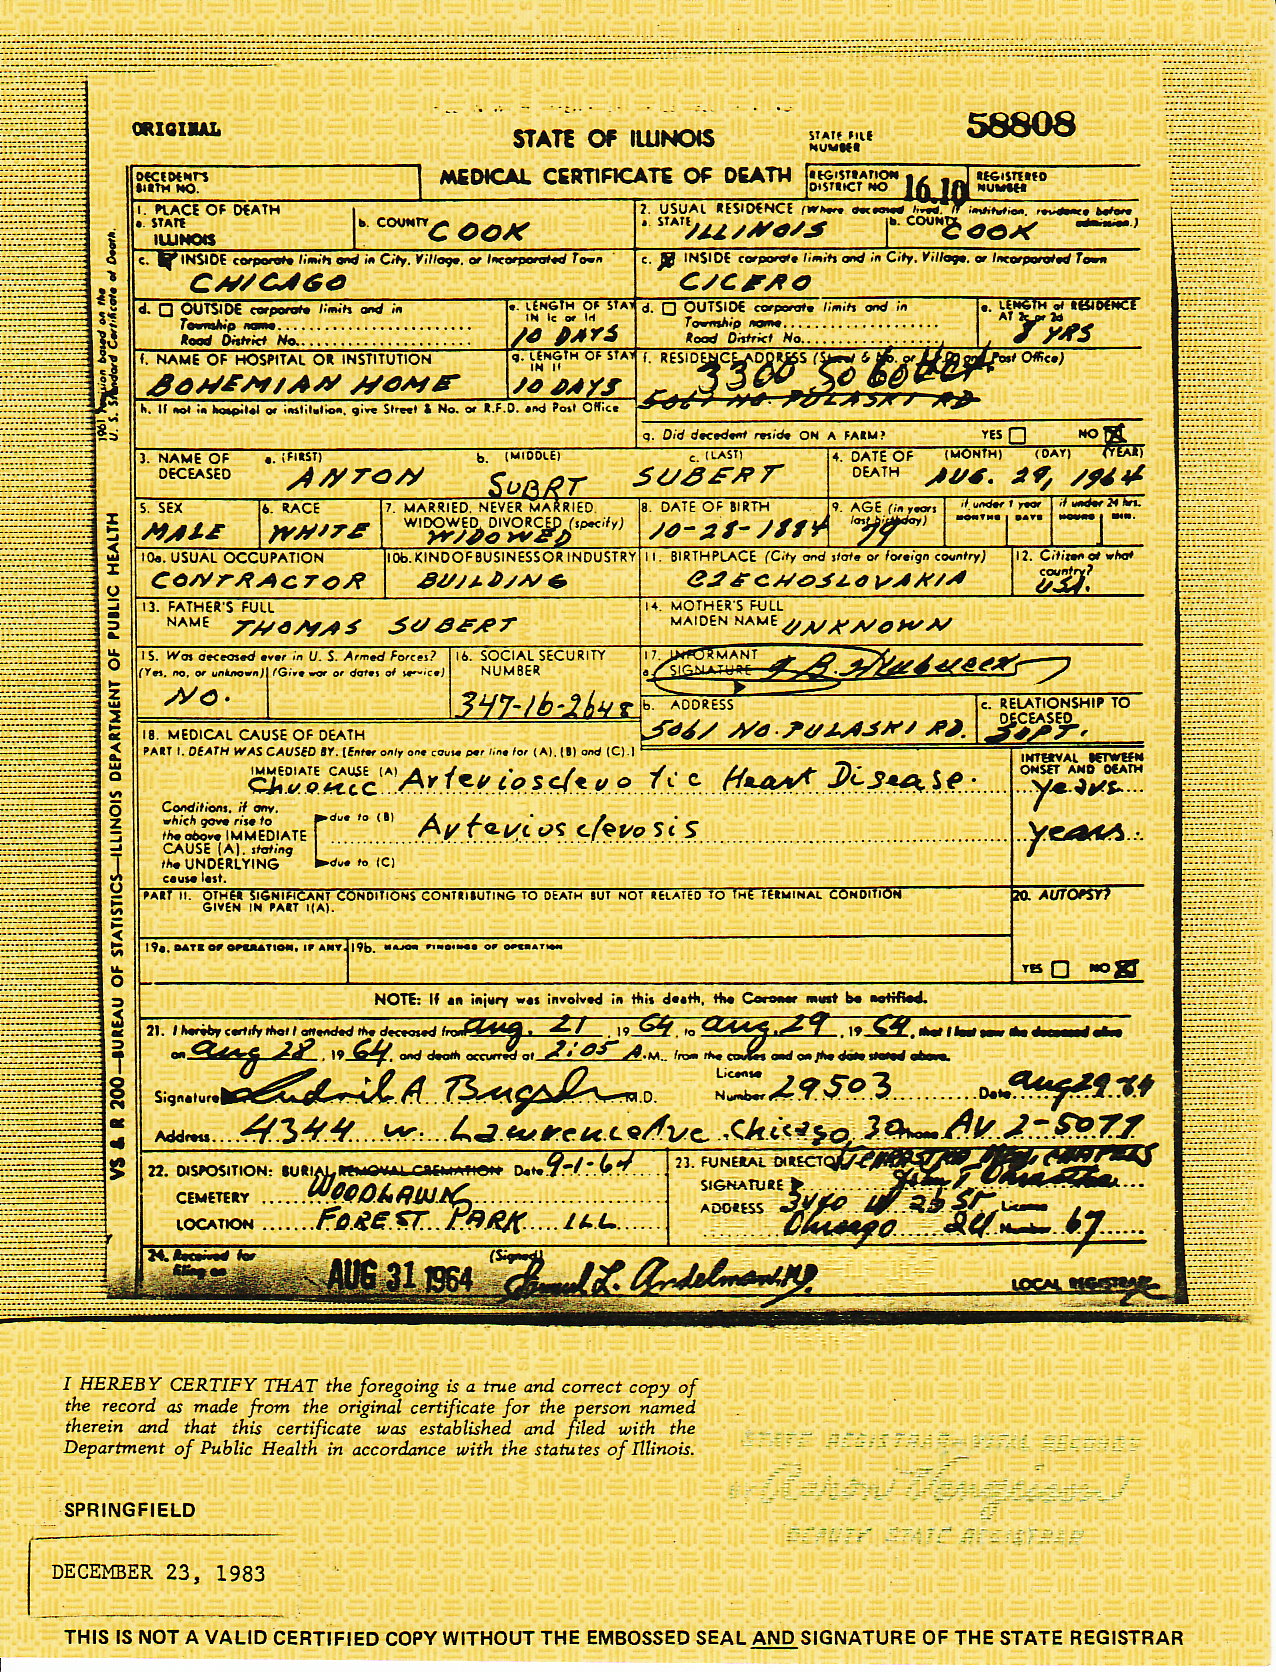 ORIGINAL
STATE OF ILLINOIS
STATE FILE NUMBER
58808
DECEDENT'S BIRTH NO.
MEDICAL CERTIFICATE OF DEATH
REGISTRATION DISTRICT NO. 16.10
REGISTERED NUMBER
1. PLACE OF DEATH
a. STATE ILLINOIS
b. COUNTY COOK
2. USUAL RESIDENCE (Where deceased lived. If institution, residence before admission.)
a. STATE ILLINOIS
b. COUNTY COOK
c. INSIDE corporate limits and in City, Village, or Incorporated Town
CHICAGO
c. INSIDE corporate limits and in City, Village, or Incorporated Town
CICERO
d. OUTSIDE corporate limits and in
Township name
Road District No.
e. LENGTH OF STAY IN 1c or 1d
10 DAYS
d. OUTSIDE corporate limits and in
Township name
Road District No.
e. LENGTH of RESIDENCE AT 2c or 2d
8 YRS
f. NAME OF HOSPITAL OR INSTITUTION
BOHEMIAN HOME
g. LENGTH OF STAY IN 1f
10 DAYS
f. RESIDENCE ADDRESS (Street & No. or R.F.D. and Post Office)
3300 SO 60 CT.
5061 NO. PULASKI RD
h. If not in hospital or institution, give Street & No. or R.F.D. and Post Office
g. Did decedent reside ON A FARM? YES NO
3. NAME OF DECEASED
a. (FIRST) b. (MIDDLE) c. (LAST)
ANTON SUBRT SUBERT
4. DATE OF DEATH (MONTH) (DAY) (YEAR)
AUG. 29, 1964
5. SEX
MALE
6. RACE
WHITE
7. MARRIED, NEVER MARRIED, WIDOWED, DIVORCED (specify)
WIDOWED
8. DATE OF BIRTH
10-28-1884
9. AGE (in years last birthday)
79
if under 1 year
MONTHS DAYS
if under 24 hrs.
HOURS MIN.
10a. USUAL OCCUPATION
CONTRACTOR
10b. KIND OF BUSINESS OR INDUSTRY
BUILDING
11. BIRTHPLACE (City and state or foreign country)
CZECHOSLOVAKIA
12. Citizen of what country?
USA.
13. FATHER'S FULL NAME
THOMAS SUBERT
14. MOTHER'S FULL MAIDEN NAME
UNKNOWN
15. Was deceased ever in U. S. Armed Forces?
(Yes, no, or unknown) (Give war or dates of service)
NO.
16. SOCIAL SECURITY NUMBER
347-16-2648
17. INFORMANT
a. SIGNATURE
b. ADDRESS
5061 NO. PULASKI RD.
c. RELATIONSHIP TO DECEASED
SUPT.
18. MEDICAL CAUSE OF DEATH
PART I. DEATH WAS CAUSED BY: [Enter only one cause per line for (A), (B) and (C).]
INTERVAL BETWEEN ONSET AND DEATH
IMMEDIATE CAUSE (A) Chronic Arteriosclerotic Heart Disease. years
Conditions, if any, which gave rise to the above IMMEDIATE CAUSE (A), stating the UNDERLYING cause last.
due to (B) Arteriosclerosis years
due to (C)
PART II. OTHER SIGNIFICANT CONDITIONS CONTRIBUTING TO DEATH BUT NOT RELATED TO THE TERMINAL CONDITION GIVEN IN PART I(A).
20. AUTOPSY?
YES NO
19a. DATE OF OPERATION, IF ANY.
19b. MAJOR FINDINGS OF OPERATION
NOTE: If an injury was involved in this death, the Coroner must be notified.
21. I hereby certify that I attended the deceased from Aug. 21, 1964, to Aug. 29, 1964, that I last saw the deceased alive
on Aug 28, 1964, and death occurred at 2:05 A.M., from the causes and on the date stated above.
Signature M.D.
License Number 29503
Date Aug 29-64
Address 4344 W. Lawrence Ave. Chicago, 30 Phone AV 2-5077
22. DISPOSITION: BURIAL REMOVAL CREMATION Date 9-1-64
CEMETERY WOODLAWN
LOCATION FOREST PARK ILL
23. FUNERAL DIRECTOR
SIGNATURE
ADDRESS 3440 W 26 ST
Chicago 24 License Number 67
24. Received for filing on
AUG 31 1964
(Signed) Samuel L. Andelman, M.D.
LOCAL REGISTRAR
VS & R 200—BUREAU OF STATISTICS—ILLINOIS DEPARTMENT OF PUBLIC HEALTH
1961 Revision based on the U. S. Standard Certificate of Death.
I HEREBY CERTIFY THAT the foregoing is a true and correct copy of
the record as made from the original certificate for the person named
therein and that this certificate was established and filed with the
Department of Public Health in accordance with the statutes of Illinois.
STATE REGISTRAR-VITAL RECORDS
DEPUTY STATE REGISTRAR
SPRINGFIELD
DECEMBER 23, 1983
THIS IS NOT A VALID CERTIFIED COPY WITHOUT THE EMBOSSED SEAL AND SIGNATURE OF THE STATE REGISTRAR